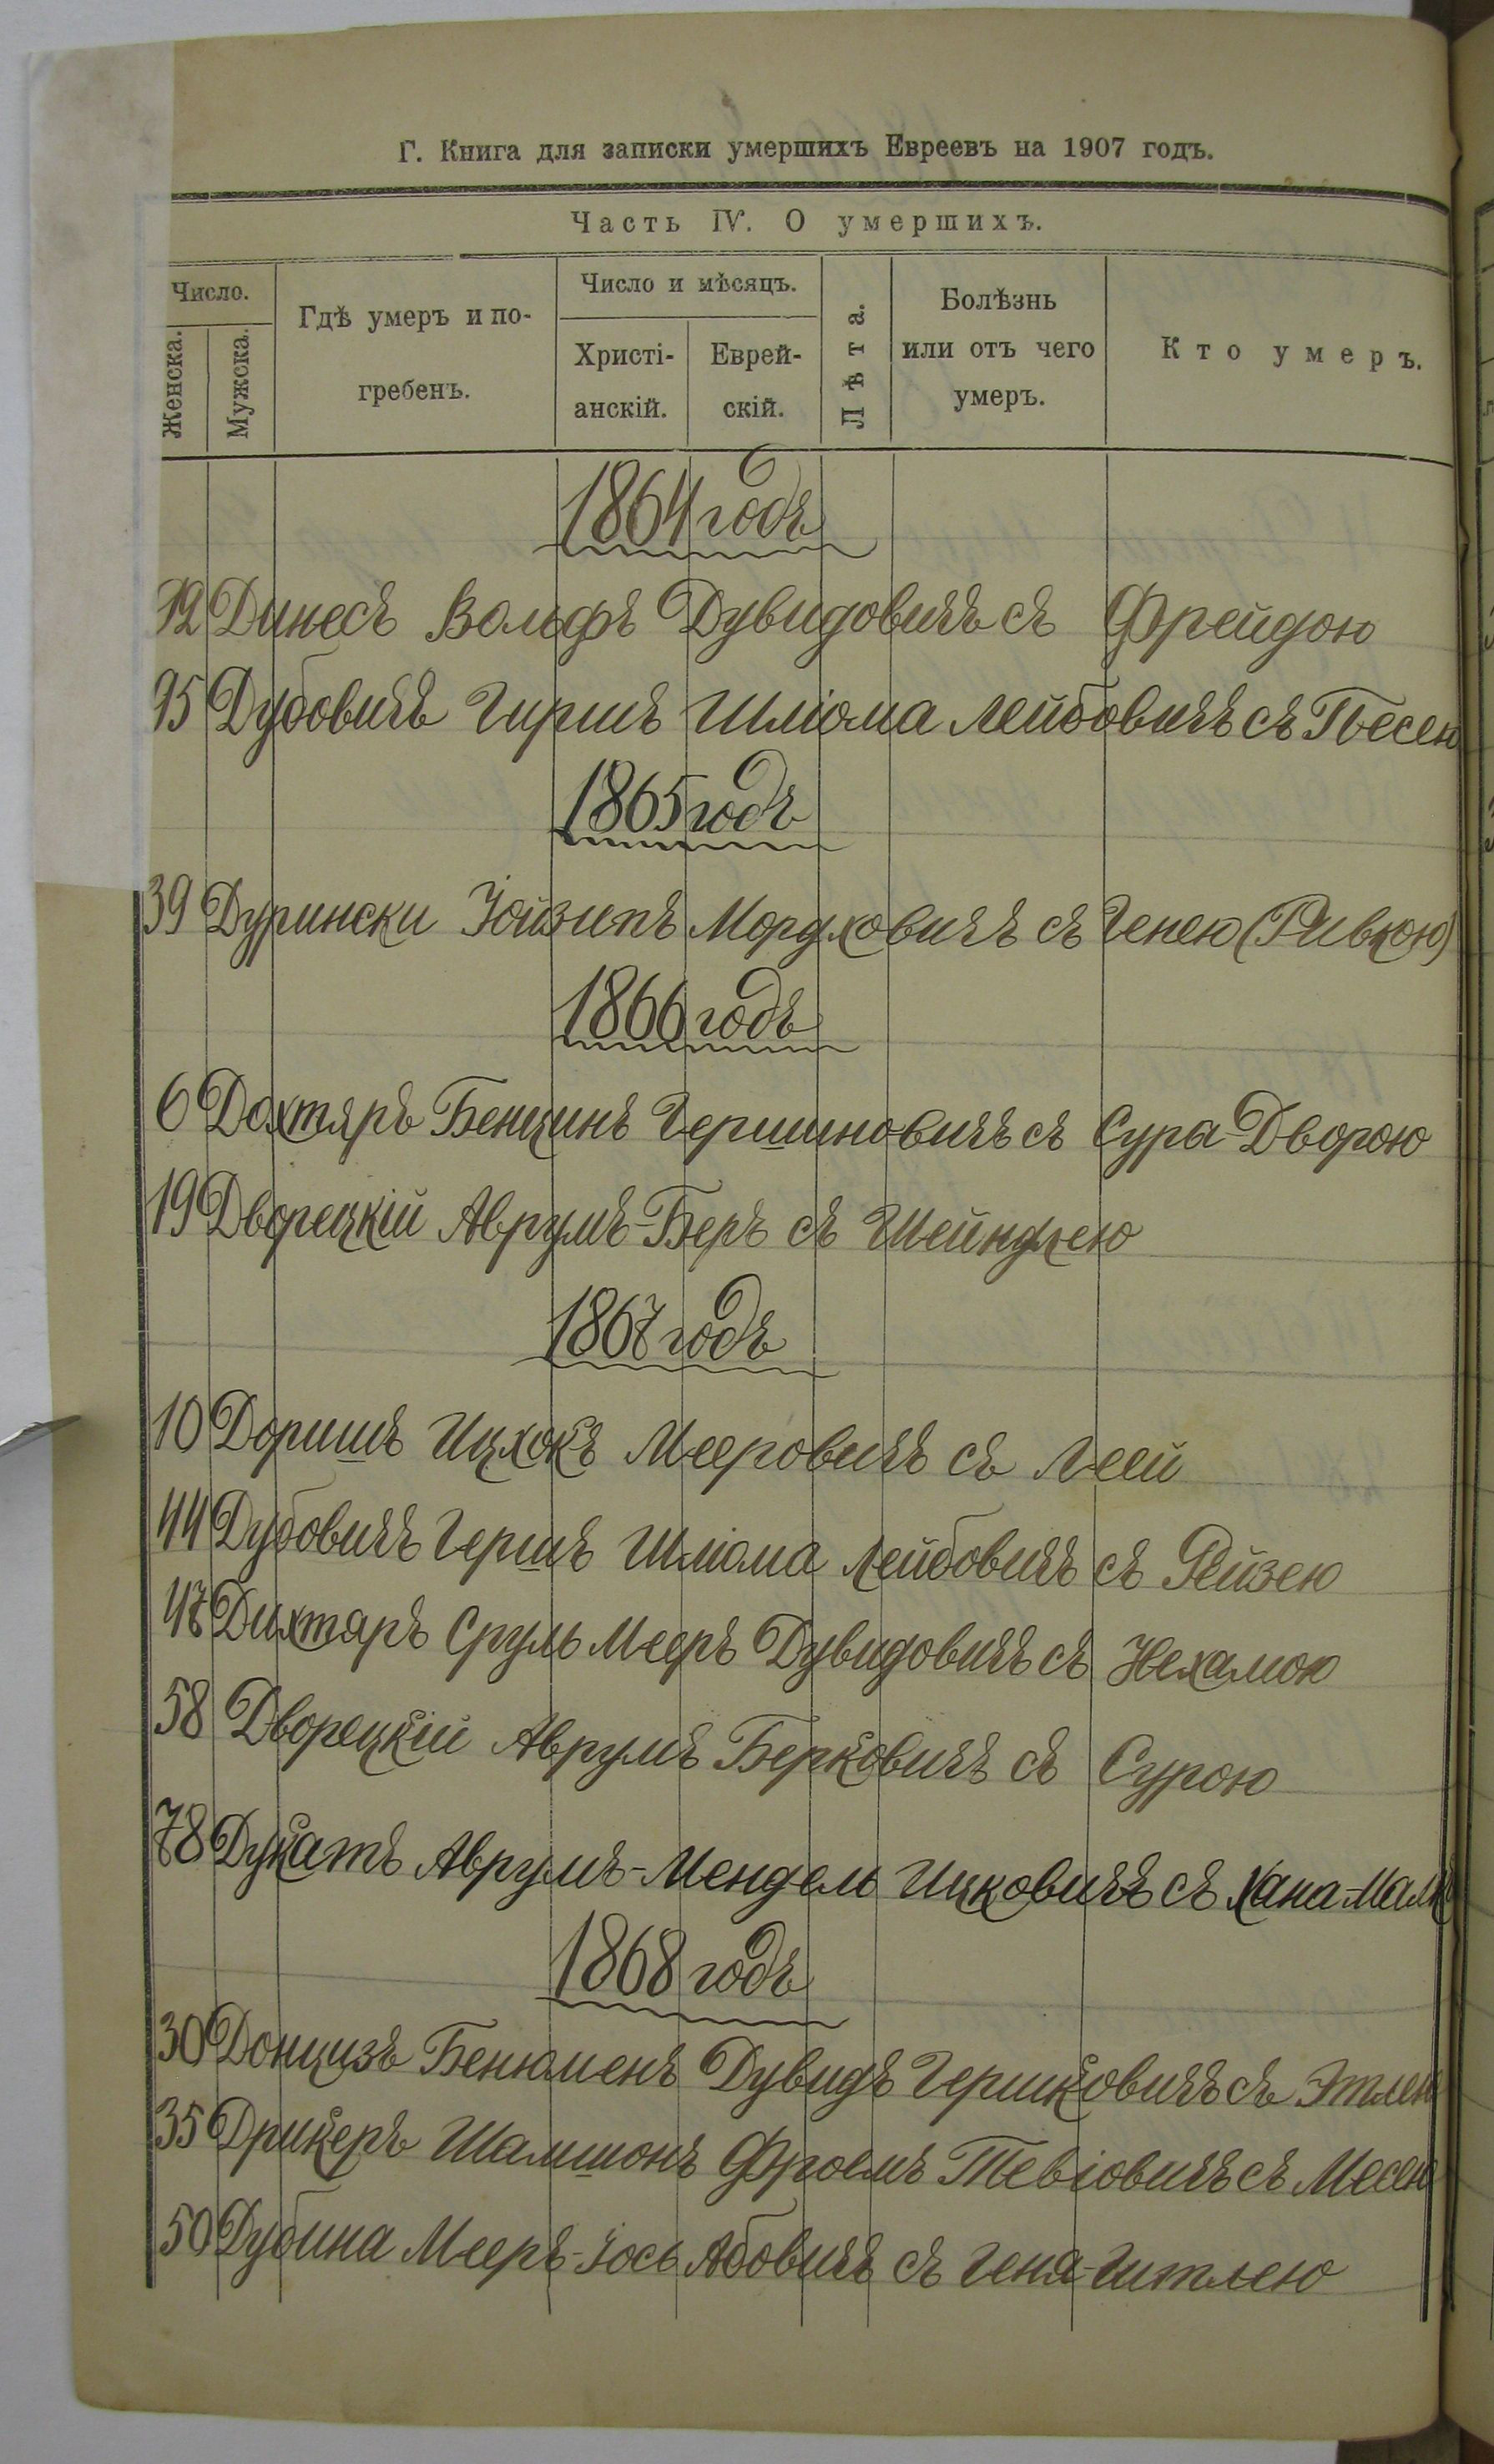 Г. Книга для записки умершихъ Евреевъ на 1907 годъ.
Часть IV. О умершихъ.
Число.
Женска.
Мужска.
Гдѣ умеръ и по-
гребенъ.
Число и мѣсяцъ.
Христі-
анскій.
Еврей-
скій.
Лѣта.
Болѣзнь
или отъ чего
умеръ.
Кто умеръ.
1864 годъ
Динесъ Вольфъ Дувидовичъ съ Фрейдою
95 Дубовичъ Гиршъ Шліома Лейбовичъ съ Песею
1865 годъ
39 Дурински Іойзипъ Мордховичъ съ Генею (Ривкою)
1866 годъ
6 Дохтяръ Бенцинъ Гершиновичъ съ Сура Дворою
19 Дворецкій Аврумъ-Беръ съ Шейндлею
1867 годъ
10 Доришъ Ицхокъ Мееровичъ съ Леей
44 Дубовичъ Гершъ Шліома Лейбовичъ съ Рейзею
47 Дихтяръ Сруль Мееръ Дувидовичъ съ Нехамою
58 Дворецкій Аврумъ Берковичъ съ Сурою
78 Дукатъ Аврумъ-Мендель Ицковичъ съ Хана-Малк
1868 годъ
30 Донцизъ Бенюменъ Дувидъ Гершковичъ съ Этлею
35 Дрикеръ Шамшонъ Фроемъ Тевіовичъ съ Месею
50 Дубина Мееръ-Іось Абовичъ съ Геня-Гитлею